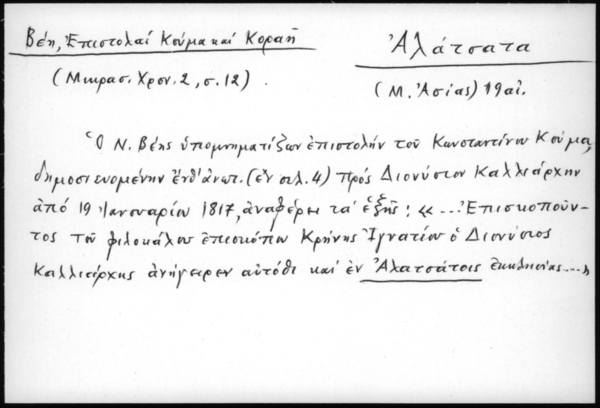 Βέη, Ἐπιστολαί Κούμα καί Κοραῆ
(Μικρασ. Χρον. 2, σ. 12).
Ἀλάτσατα
(Μ. Ἀσίας) 19 αἰ.
Ὁ Ν. Βέης ὑπομνηματίζων ἐπιστολήν τοῦ Κωνσταντίνου Κούμα,
δημοσιευομένην ἐνθ' ἀνωτ. (ἐν σελ. 4) πρός Διονύσιον Καλλιάρχην
ἀπό 19 Ἰανουαρίου 1817, ἀναφέρει τά ἑξῆς: «...Ἐπισκοποῦν-
τος τοῦ φιλοκάλου ἐπισκόπου Κρήνης Ἰγνατίου ὁ Διονύσιος
Καλλιάρχης ἀνήγειρεν αὐτόθι καί ἐν Ἀλατσάτοις ἐκκλησίας....»